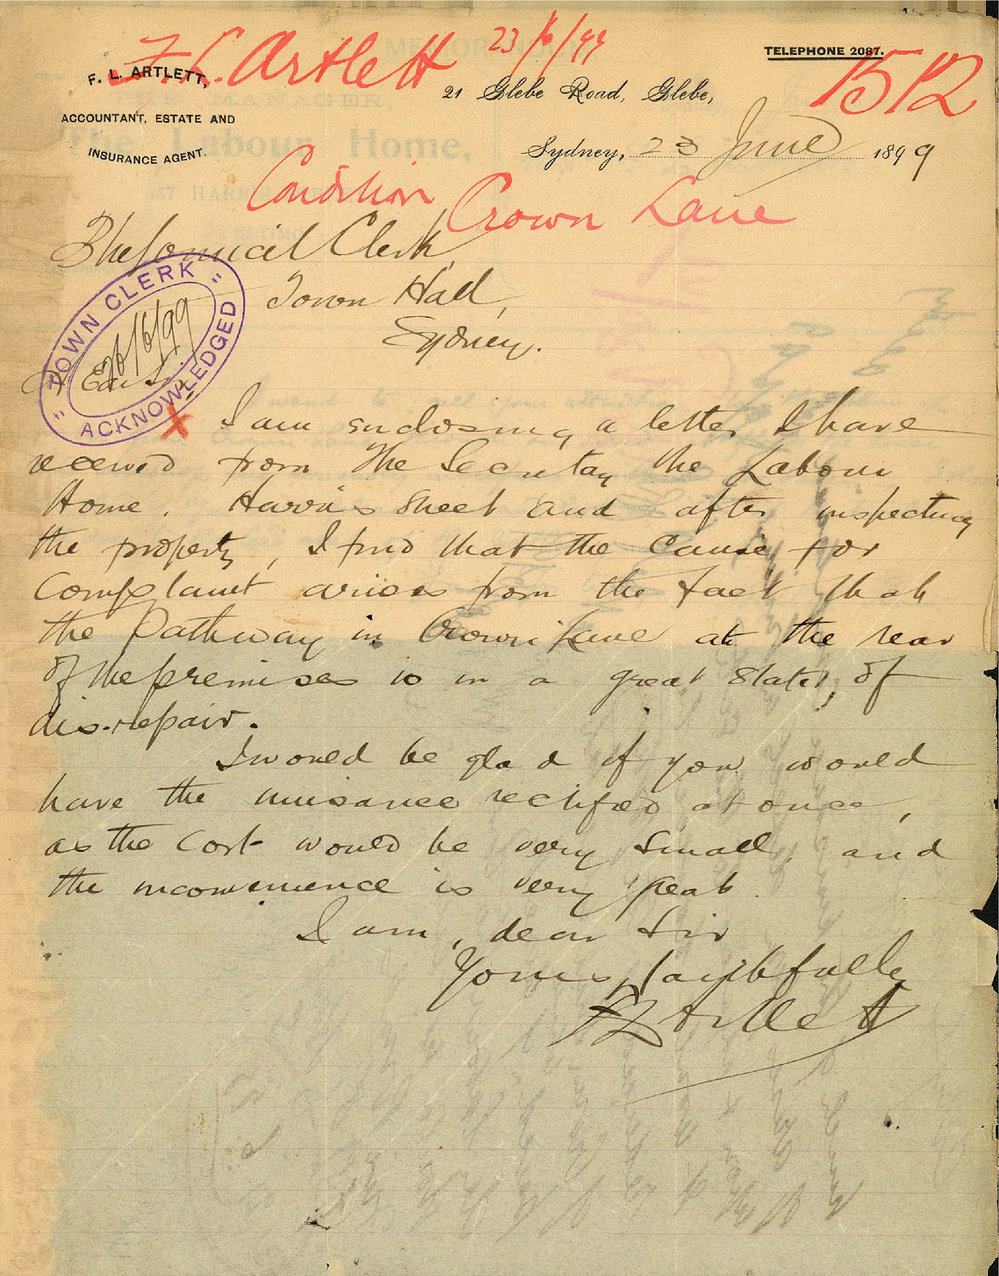 F. L. Artlett 23/6/99
TELEPHONE 2087.
1512
F. L. ARTLETT,
ACCOUNTANT, ESTATE AND
INSURANCE AGENT.
21 Glebe Road, Glebe,
Sydney, 23 June 1899
Condition Crown Lane
The Council Clerk,
Town Hall,
Sydney.
"TOWN CLERK"
26/6/99
ACKNOWLEDGED
Dear Sir,
X I am enclosing a letter I have
received from the Secretary the Labour
Home, Harris Street and after inspecting
the property, I find that the cause for
Complaint arises from the fact that
the Pathway in Crown Lane at the rear
of the premises is in a great state, of
dis-repair.
I would be glad if you would
have the nuisance rectified at once,
as the cost would be very small, and
the inconvenience is very great.
I am, dear Sir
Yours faithfully
F L Artlett